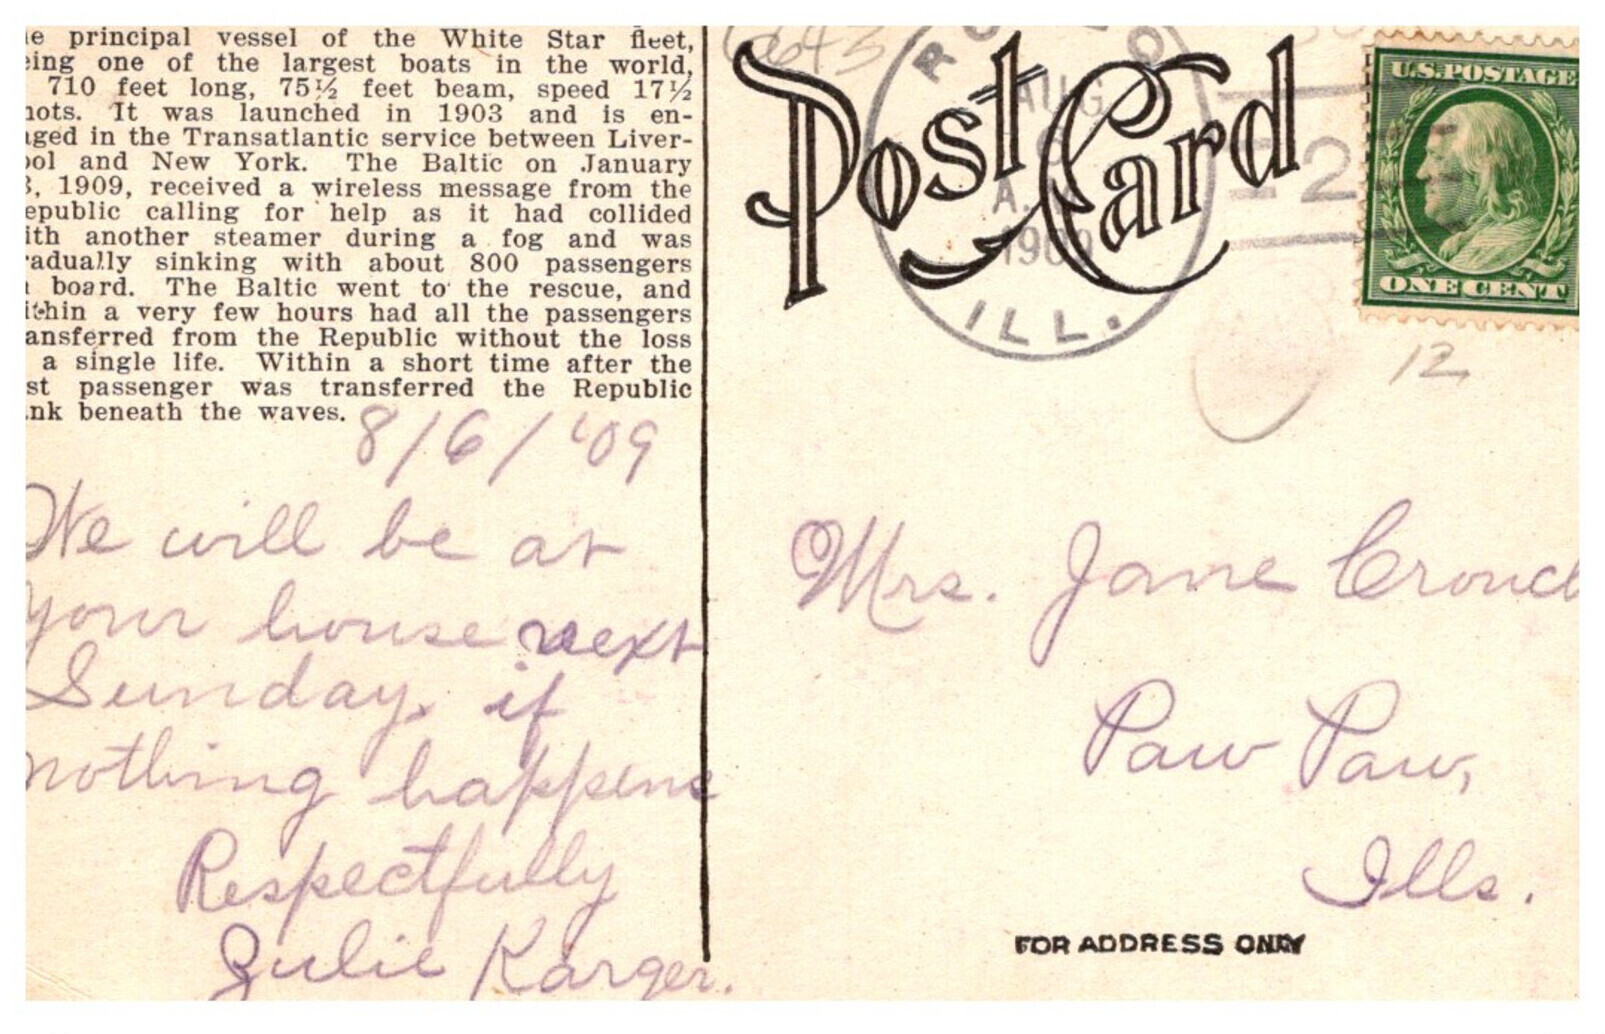 e principal vessel of the White Star fleet,
eing one of the largest boats in the world,
710 feet long, 75½ feet beam, speed 17½
nots. It was launched in 1903 and is en-
aged in the Transatlantic service between Liver-
ool and New York. The Baltic on January
3, 1909, received a wireless message from the
epublic calling for help as it had collided
ith another steamer during a fog and was
radually sinking with about 800 passengers
n board. The Baltic went to the rescue, and
ithin a very few hours had all the passengers
ansferred from the Republic without the loss
a single life. Within a short time after the
st passenger was transferred the Republic
nk beneath the waves.
8/6/'09
We will be at
your house next
Sunday, if
nothing happens
Respectfully
Julie Karger.
Post Card
AUG
6
A.M.
1909
ILL.
2
U.S. POSTAGE
ONE CENT
12
Mrs. Jane Crouch
Paw Paw,
Ills.
FOR ADDRESS ONLY